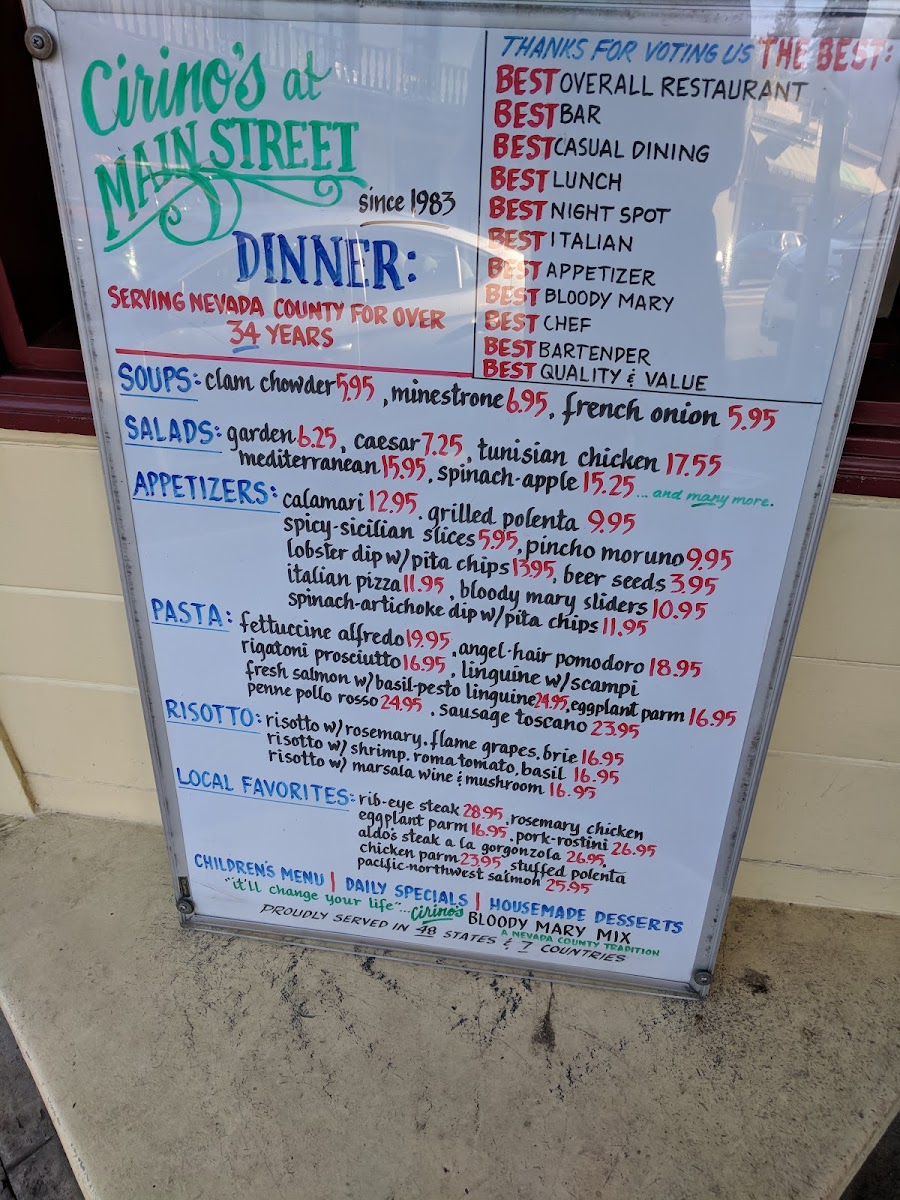 Cirino's at
MAIN STREET
since 1983
DINNER:
SERVING NEVADA COUNTY FOR OVER
34 YEARS
THANKS FOR VOTING US THE BEST:
BEST OVERALL RESTAURANT
BEST BAR
BEST CASUAL DINING
BEST LUNCH
BEST NIGHT SPOT
BEST ITALIAN
BEST APPETIZER
BEST BLOODY MARY
BEST CHEF
BEST BARTENDER
BEST QUALITY & VALUE
SOUPS: clam chowder 5.95, minestrone 6.95, french onion 5.95
SALADS: garden 6.25, caesar 7.25, tunisian chicken 17.55
mediterranean 15.95, spinach-apple 15.25 ... and many more.
APPETIZERS: calamari 12.95. grilled polenta 9.95
spicy-sicilian slices 5.95, pincho moruno 9.95
lobster dip w/pita chips 13.95, beer seeds 3.95
italian pizza 11.95, bloody mary sliders 10.95
spinach-artichoke dip w/pita chips 11.95
PASTA: fettuccine alfredo 19.95, angel-hair pomodoro 18.95
rigatoni prosciutto 16.95, linguine w/scampi
fresh salmon w/basil-pesto linguine 24.95, eggplant parm 16.95
penne pollo rosso 24.95, sausage toscano 23.95
RISOTTO: risotto w/rosemary, flame grapes, brie 16.95
risotto w/ shrimp, roma tomato, basil 16.95
risotto w/ marsala wine & mushroom 16.95
LOCAL FAVORITES: rib-eye steak 28.95, rosemary chicken
eggplant parm 16.95, pork-rostini 26.95
aldo's steak a la gorgonzola 26.95,
chicken parm 23.95, stuffed polenta
pacific-northwest salmon 25.95
CHILDREN'S MENU | DAILY SPECIALS | HOUSEMADE DESSERTS
"it'll change your life"... Cirino's BLOODY MARY MIX
A NEVADA COUNTY TRADITION
PROUDLY SERVED IN 48 STATES & 7 COUNTRIES